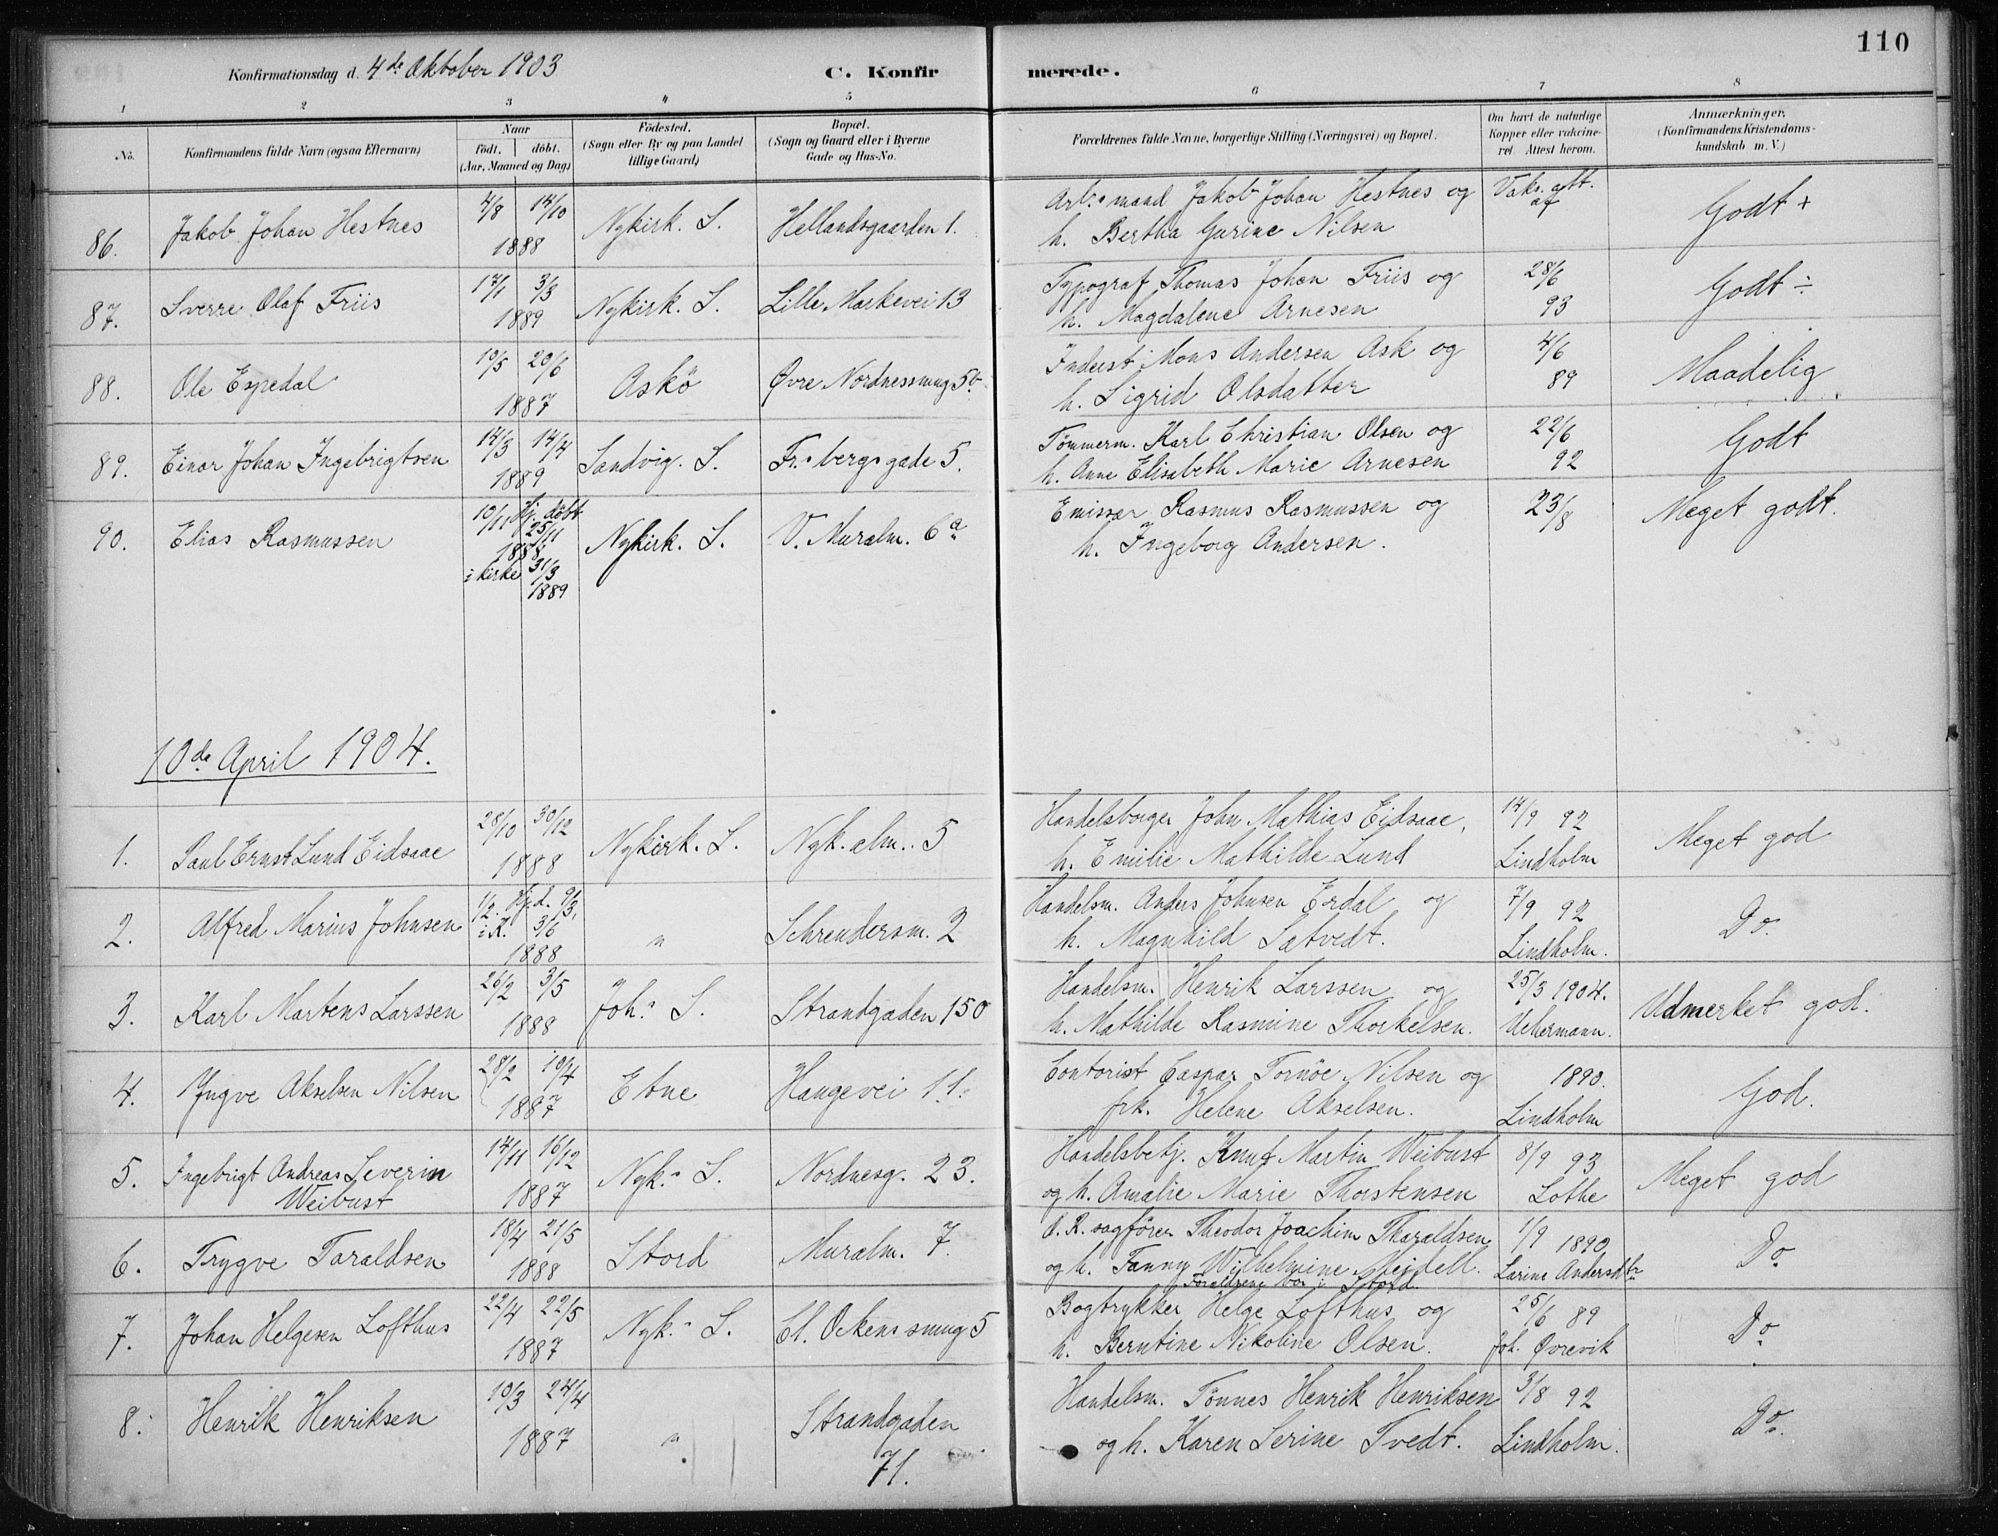 110
Konfirmationsdag d. 4de Oktober 1903 C. Konfir merede.
1 2 3 4 5 6 7 8
No. Konfirmandens fulde Navn (ogsaa Efternavn) Naar født. døbt. (Aar, Maaned og Dag) Fødested. (Sogn eller By og paa Landet tillige Gaard) Bopæl. (Sogn og Gaard eller i Byerne Gade og Hus-No. Forældrenes fulde Navne, borgerlige Stilling (Næringsvei) og Bopæl. Om havt de naturlige Kopper eller vakcineret. Attest herom. Anmærkninger. (Konfirmandens Kristendomskundskab m. V.)
86. Jakob Johan Hestnes 4/8 14/10 1888 Nykirk. S. Hellandsgaarden 1. Arb.mand Jakob Johan Hestnes og
h. Bertha Gurine Nilsen Vaks. att. af Godt +
87. Sverre Olaf Friis 17/1 3/3 1889 Nykirk. S. Lille Markevei 13 Typograf Thomas Johan Friis og
h. Magdalene Arnesen 28/6 93 Godt ÷
88. Ole Espedal 10/5 20/6 1887 Askö Øvre Nordnessmug 5b. Inderst Mons Andersen Ask og
h. Sigrid Olsdatter 4/6 89 Maadelig
89. Einar Johan Ingebrigtsen 14/3 14/4 1889 Sandvig. S. Fr.bergsgade 5. Tömmerm. Karl Christian Olsen og
h. Anne Elisabeth Marie Arnesen 22/6 92 Godt
90. Elias Rasmussen 10/11 Hj. döbt 25/11 1888 i kirke 31/3 1889 Nykirk. S. V. Muralm. 6a Emissær Rasmus Rasmussen og
h. Ingeborg Andersen. 23/8 Meget godt.
10de April 1904.
1. Paul Ernst Lund Eidsaae 28/10 30/12 1888 Nykirk. S. Nyk. alm. 5 Handelsborger John Mathias Eidsaae,
h. Emilie Mathilde Lund 14/9 92 Lindholm Meget god
2. Alfred Marius Johnsen 1/2. Hj.d. 9/3, i K. 3/6 1888 " Schrendersm. 2 Handelsm. Anders Johnsen Erdal og
h. Magnhild Satvedt. 7/9 92 Lindholm. Do.
3. Karl Martens Larssen 26/2 3/5 1888 Joh. S. Strandgaden 150 Handelsm. Henrik Larssen og
h. Mathilde Rasmine Thorkelsen. 25/3 1904. Uchermann. Udmerket god.
4. Yngve Akselsen Nilsen 28/2 10/4 1887 Etne Haugevei 11. Contorist Caspar Tornöe Nilsen og
frk. Helene Akselsen. 1890. Lindholm God.
5. Ingebrigt Andreas Severin
Weibust 14/11 16/12 1887 Nyk. S. Nordnesg. 23. Handelsbetj. Knut Martin Weibust
og h. Amalie Marie Thorstensen 8/9 93 Lothe Meget god
6. Trygve Taraldsen 18/4 21/5 1888 Stord Muralm. 7. O. R. sagförer Theodor Joachim Tharaldsen
og h. Fanny Wilhelmine Mejdell. 1/9 1890 Larine Andersdtr Do
Forældrene bor i Stord
7. Johan Helgesen Lofthus 22/4 22/5 1887 Nyk. S. Cl. Ockens smug 5 Bogtrykker Helge Lofthus og
h. Berntine Nikoline Olsen. 25/6 89 Joh. Øvrevik Do
8. Henrik Henriksen 10/3 24/4 1887 " Strandgaden
71. Handelsm. Tönnes Henrik Henriksen
og h. Karen Serine Tvedt. 3/8 92 Lindholm. Do.